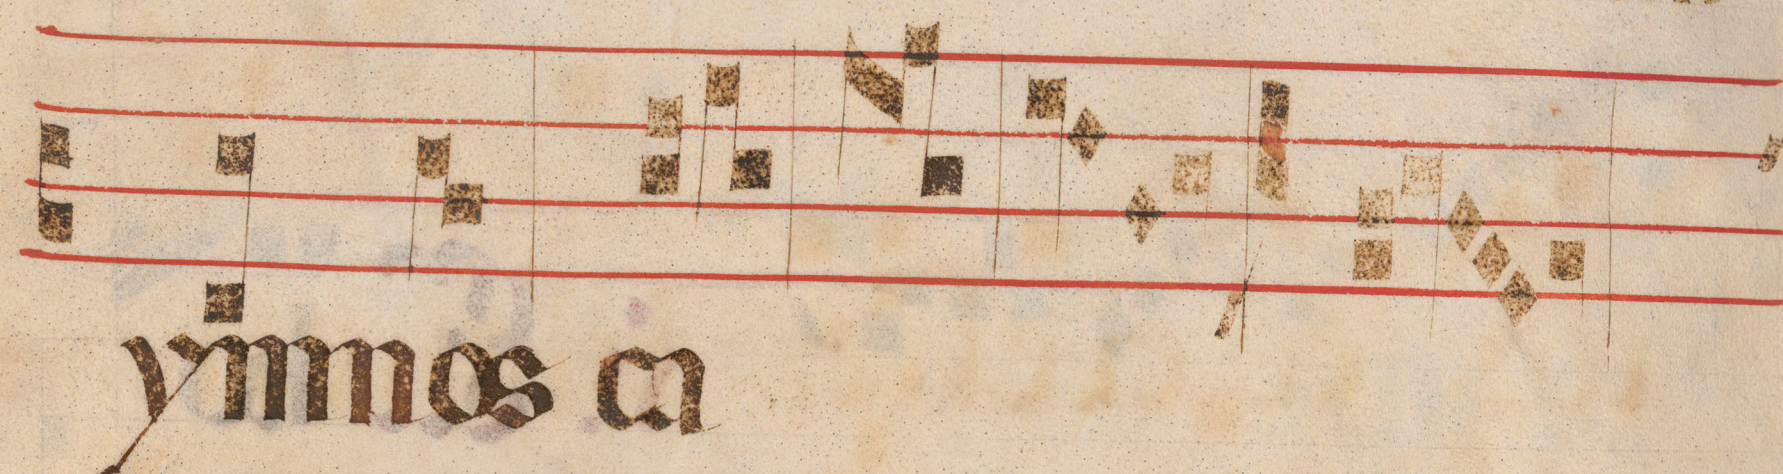 ymnos ca